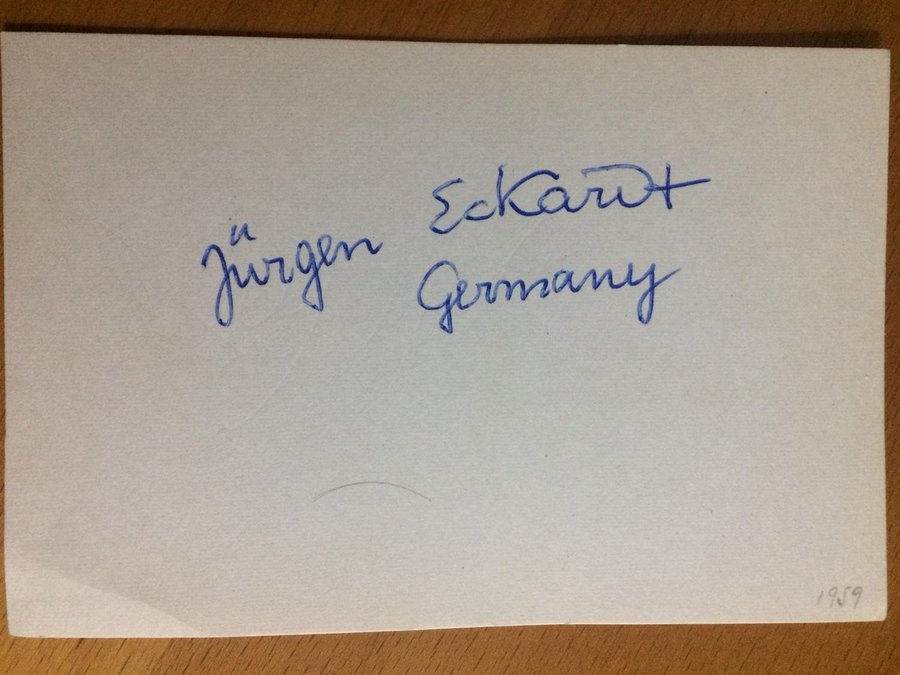 Jürgen Eckardt
Germany
1959